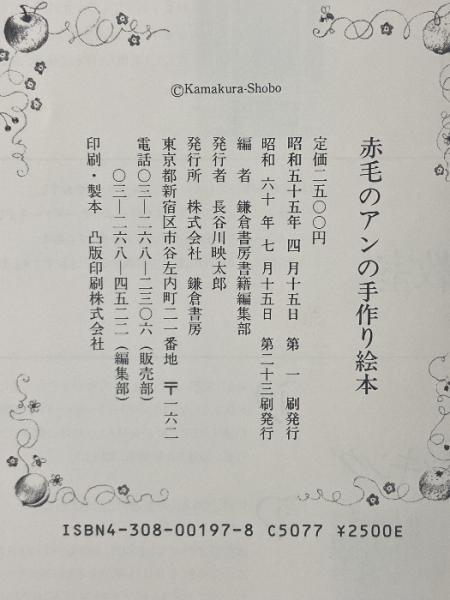 ©Kamakura-Shobo
赤毛のアンの手作り絵本
定価二五〇〇円
昭和五十五年 四 月十五日 第 一 刷発行
昭和 六十 年 七 月十五日 第二十三刷発行
編 者 鎌倉書房書籍編集部
発行者 長谷川映太郎
発行所 株式会社 鎌倉書房
東京都新宿区市谷左内町二一番地 〒一六二
電話〇三―二六八―二三〇六(販売部)
〇三―二六八―四五二二(編集部)
印刷・製本 凸版印刷株式会社
ISBN4-308-00197-8 C5077 ¥2500E